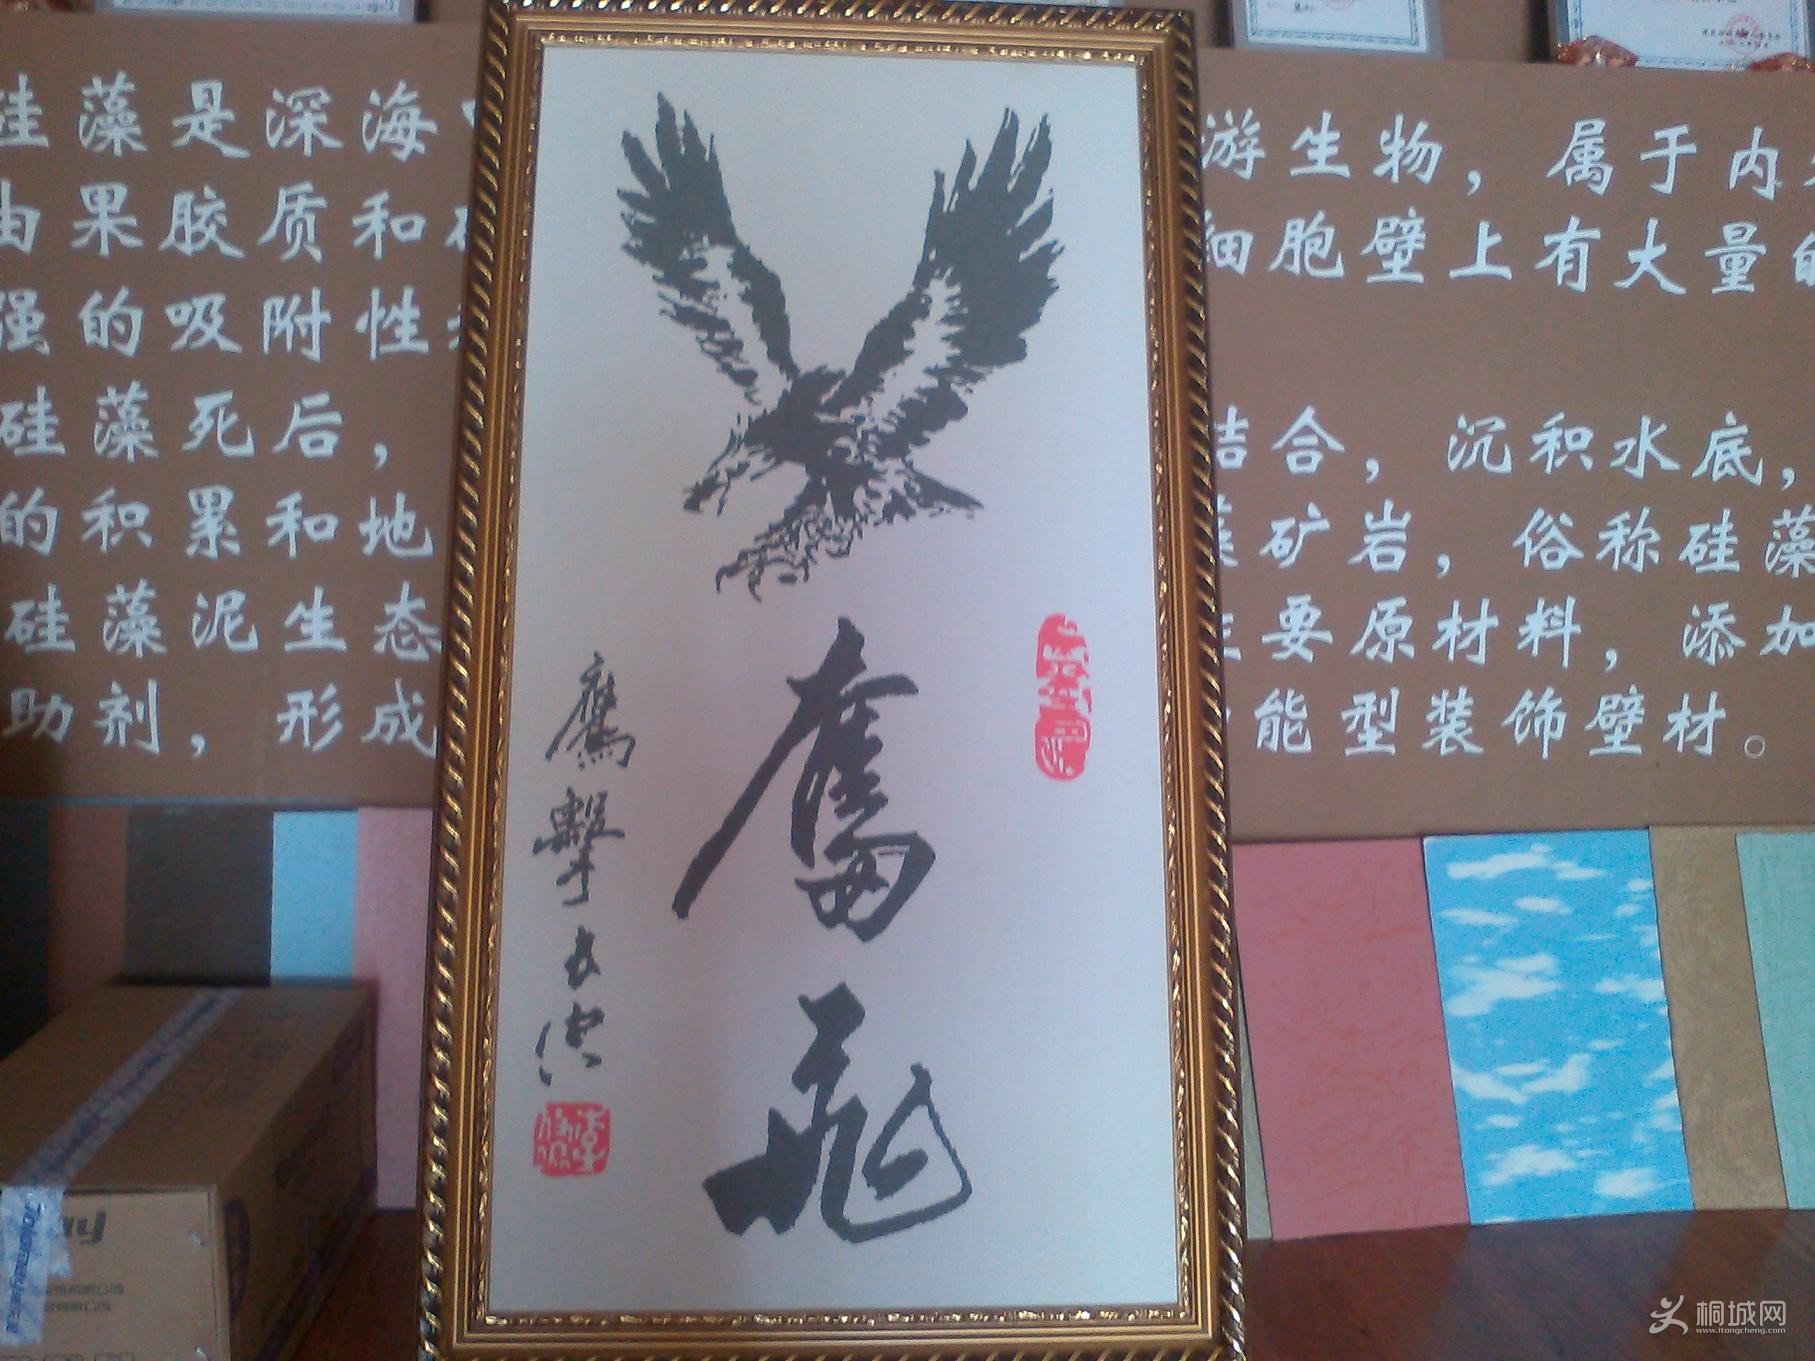 硅藻是深海
游生物，属于内
由果胶质和
细胞壁上有大量的
强的吸附性
硅藻死后，
结合，沉积水底，
的积累和地
矿岩，俗称硅藻
硅藻泥生态
主要原材料，添加
助剂，形成
能型装饰壁材。
奮飛
鷹擊長空
桐城网
www.itongcheng.com